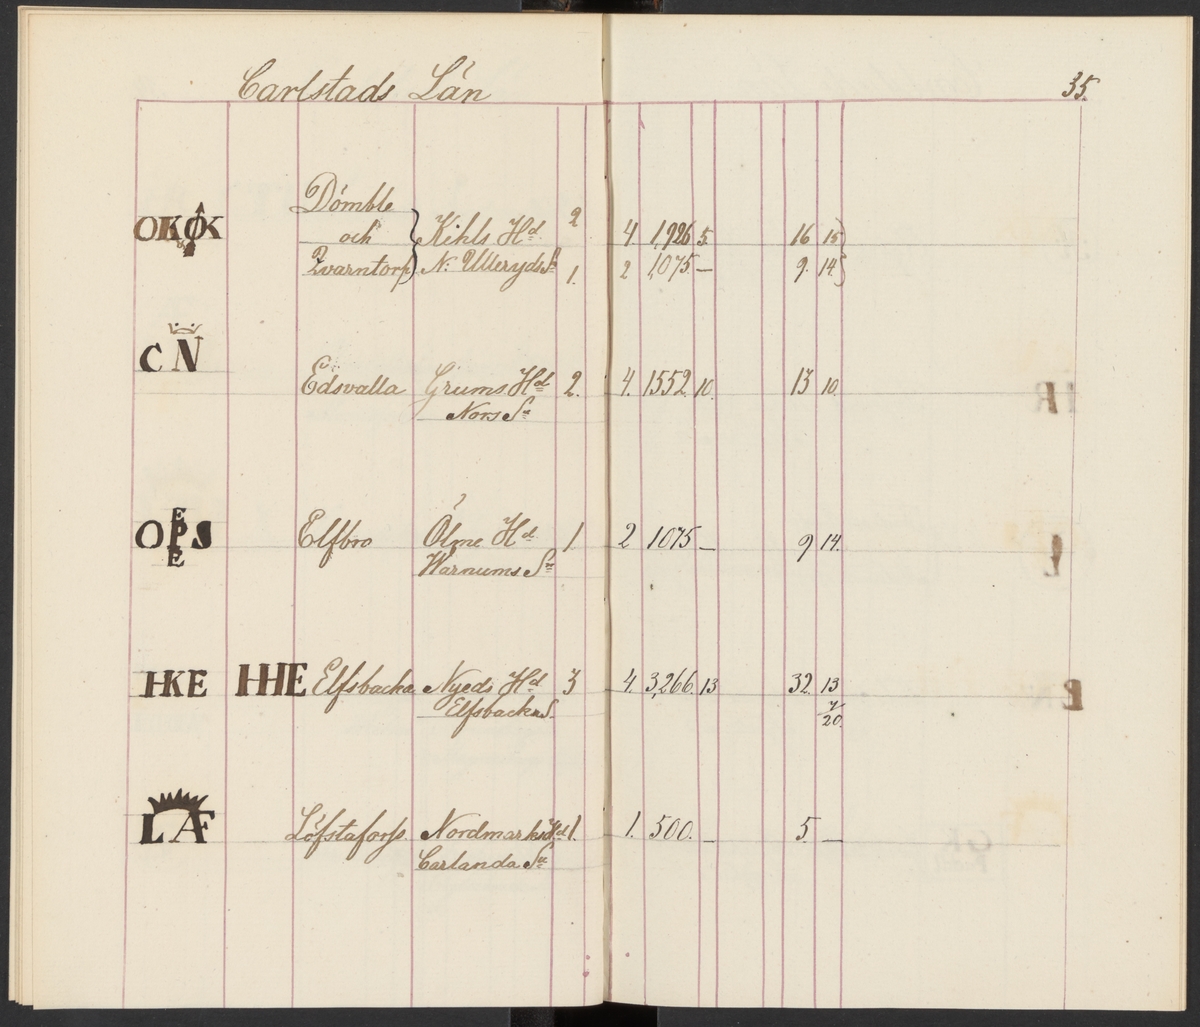 Carlstads Län
35.
Dömble
OKØK och Kihls Hd 2 4 1,926 5 16 15
Qvarntorp N: Ulleryds Sn 1. 2 1,075 — 9. 14
C N
Edsvalla Grums Hd 2. 4. 1552 10. 13 10.
Nors Sn
E
OPS Elfbro Ölme Hd 1 2 1075 — 9 14.
E Warnums Sn
HKE HHE Elfsbacka Nyeds Hd 3 4. 3,266. 13 32. 13
Elfsbacka S. 7/20.
LÆ Löfstaforss Nordmarks Hd 1. 1. 500. — 5. —
Carlanda Sn